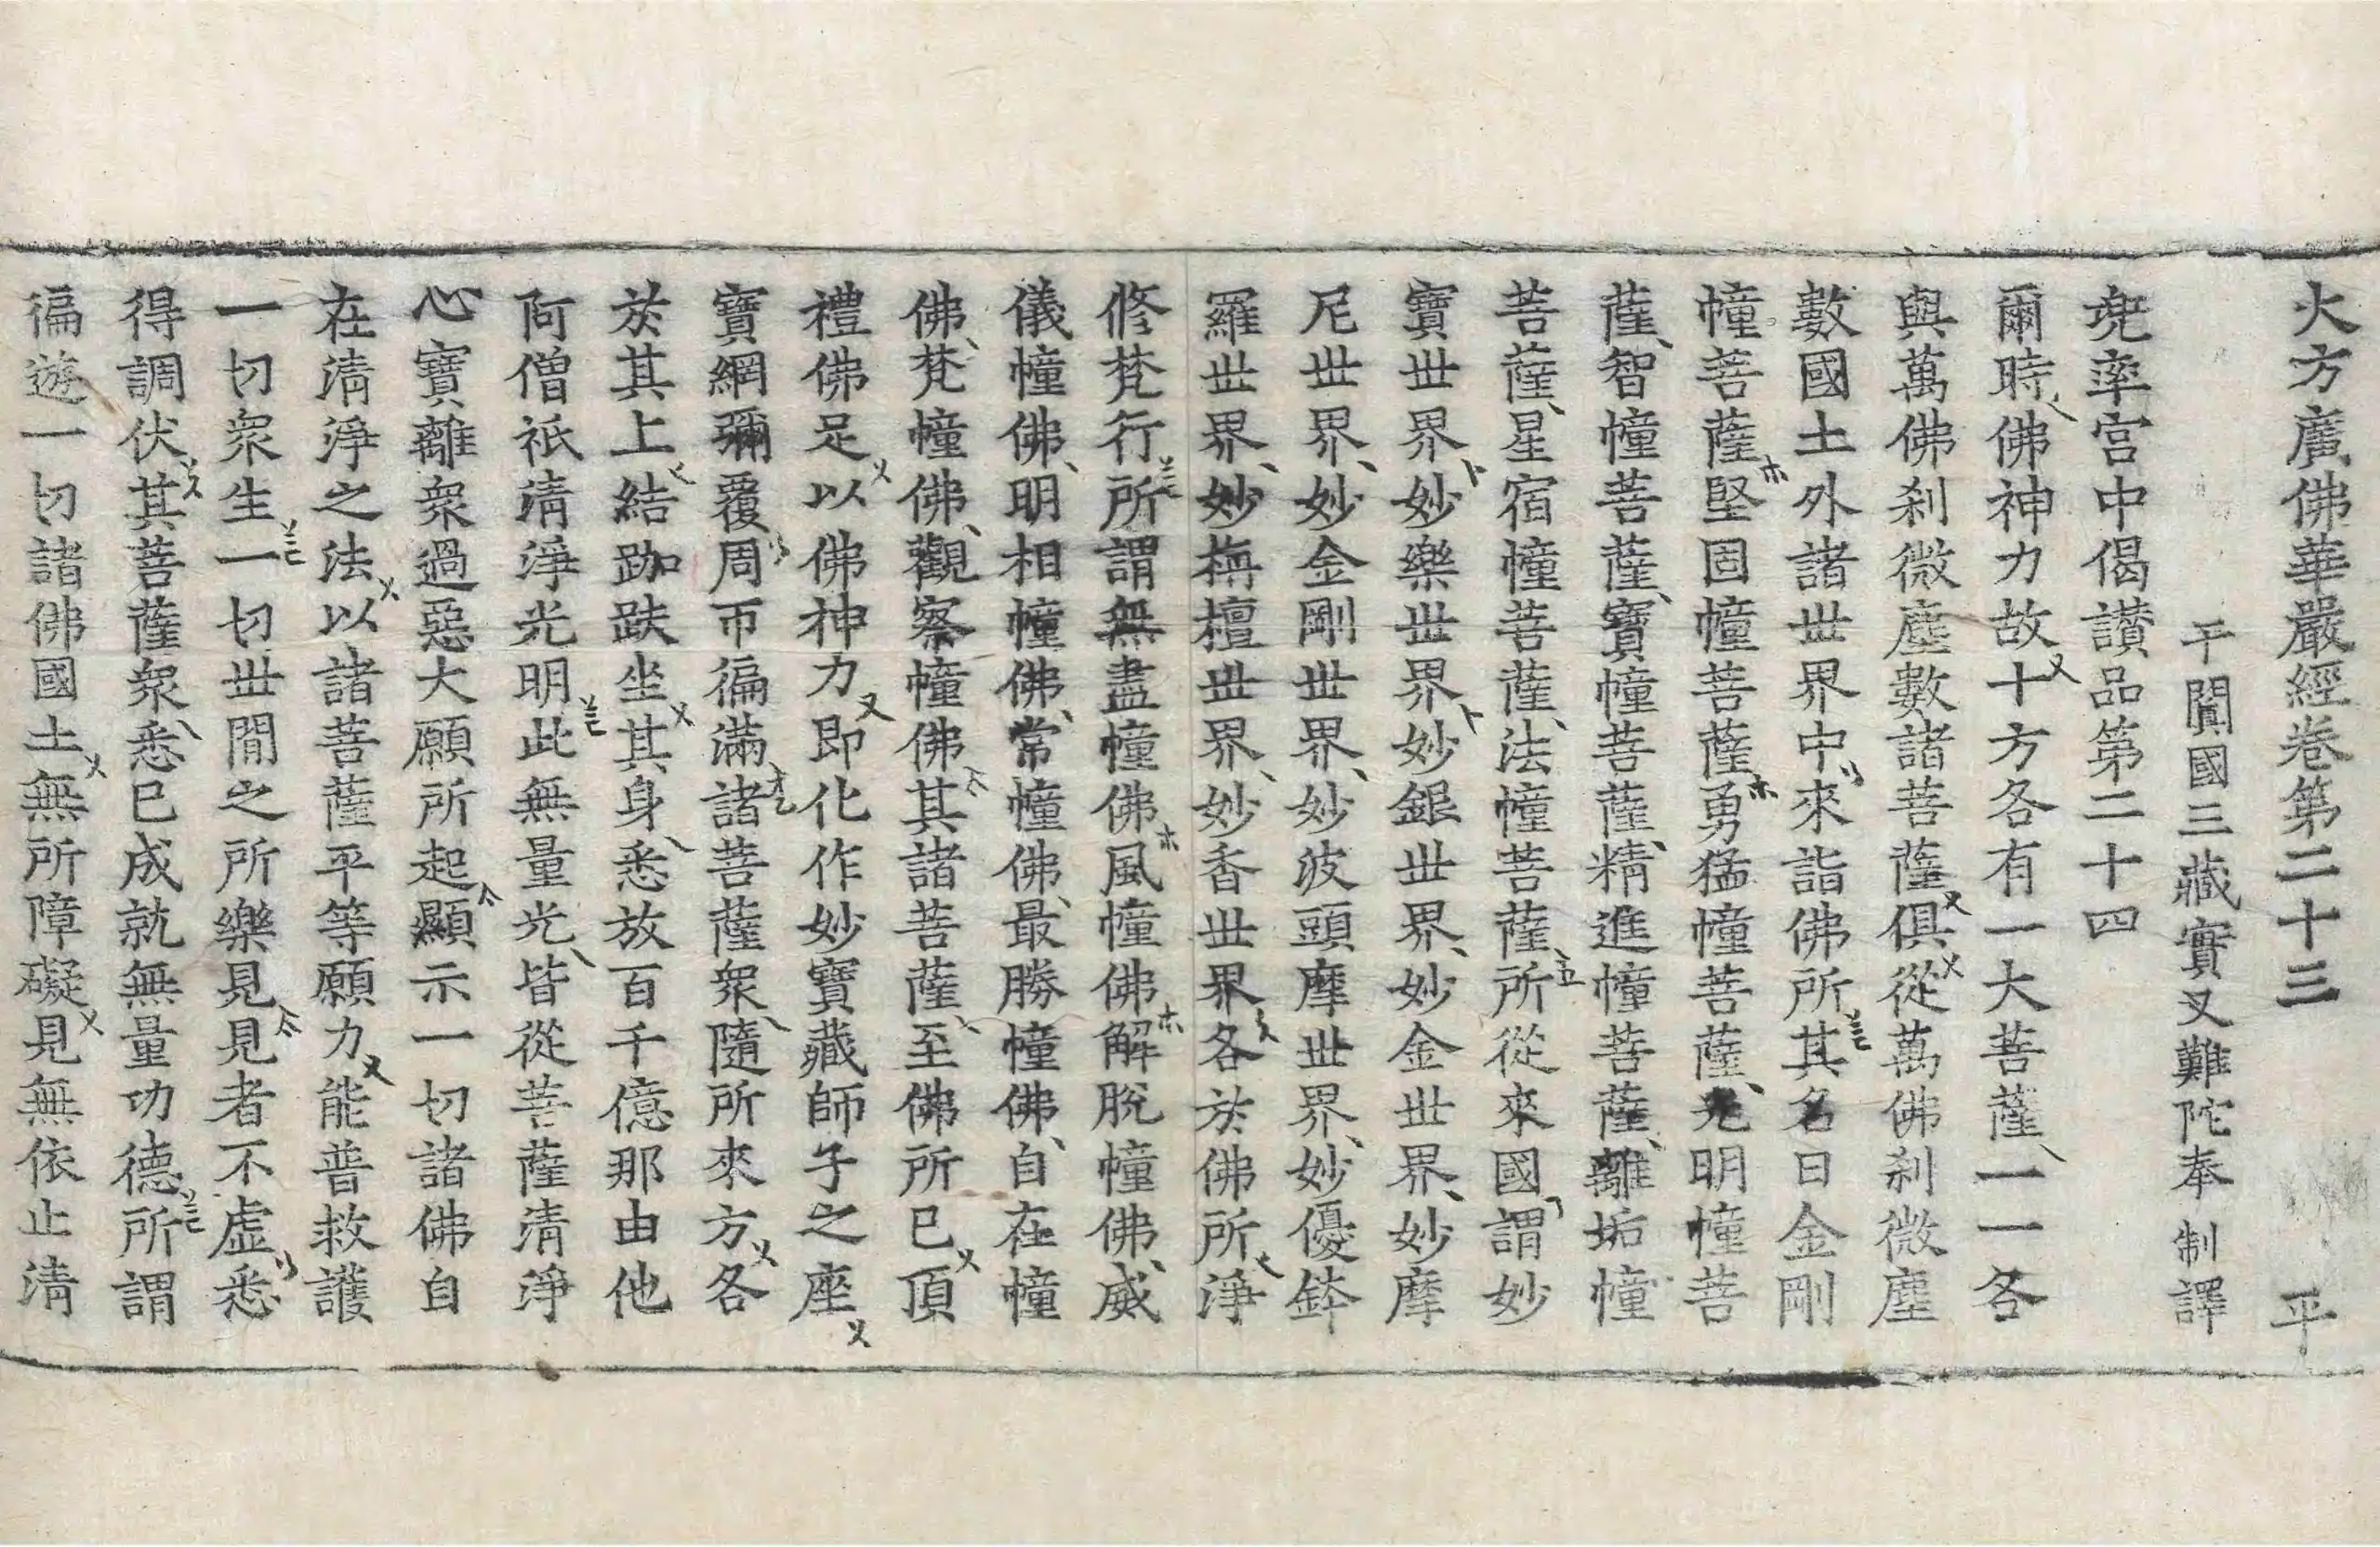 大方廣佛華嚴經卷第二十三 平
于闐國三藏實叉難陀奉 制譯
兜率宮中偈讃品第二十四
爾時佛神力故十方各有一大菩薩一一各
與萬佛刹微塵數諸菩薩俱從萬佛刹微塵
數國土外諸世界中來詣佛所其名曰金剛
幢菩薩堅固幢菩薩勇猛幢菩薩光明幢菩
薩智幢菩薩寶幢菩薩精進幢菩薩離垢幢
菩薩星宿幢菩薩法幢菩薩所從來國謂妙
寶世界妙樂世界妙銀世界妙金世界妙摩
尼世界妙金剛世界妙波頭摩世界妙優鉢
羅世界妙栴檀世界妙香世界各於佛所淨
修梵行所謂無盡幢佛風幢佛解脫幢佛威
儀幢佛明相幢佛常幢佛最勝幢佛自在幢
佛梵幢佛觀察幢佛其諸菩薩至佛所已頂
禮佛足以佛神力即化作妙寶藏師子之座
寶網彌覆周帀徧滿諸菩薩衆隨所來方各
於其上結跏趺坐其身悉放百千億那由他
阿僧祇清淨光明此無量光皆從菩薩清淨
心寶離衆過惡大願所起顯示一切諸佛自
在清淨之法以諸菩薩平等願力能普救護
一切衆生一切世間之所樂見見者不虛悉
得調伏其菩薩衆悉已成就無量功德所謂
徧遊一切諸佛國土無所障礙見無依止清